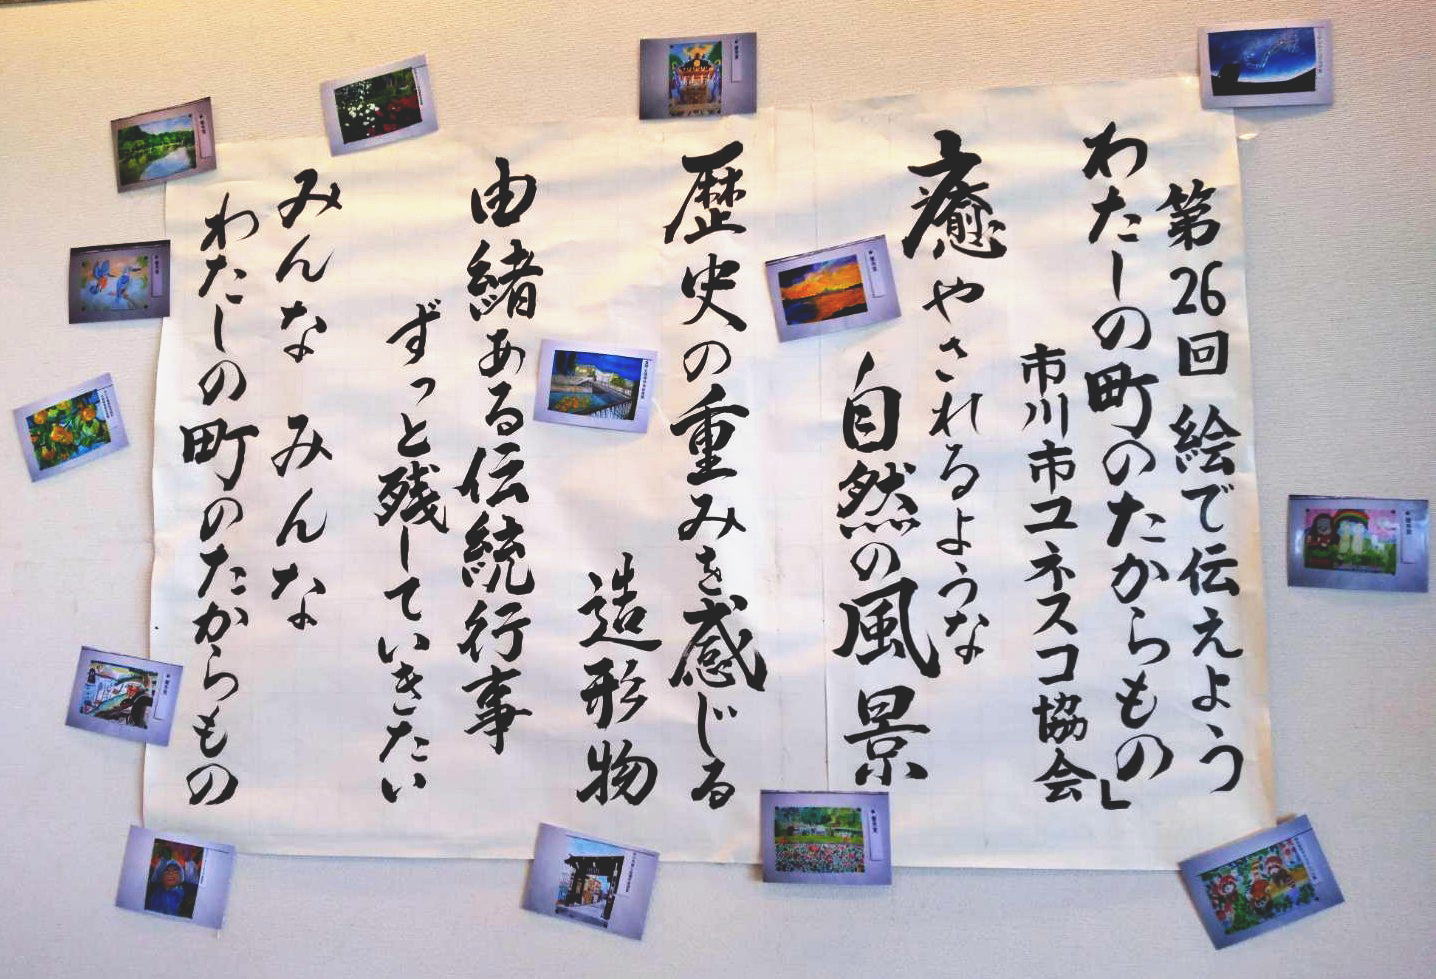 第26回 絵で伝えよう
わたしの町のたからもの」
市川市ユネスコ協会
癒やされるような
自然の風景
歴史の重みを感じる
造形物
由緒ある伝統行事
ずっと残していきたい
みんな みんな
わたしの町のたからもの